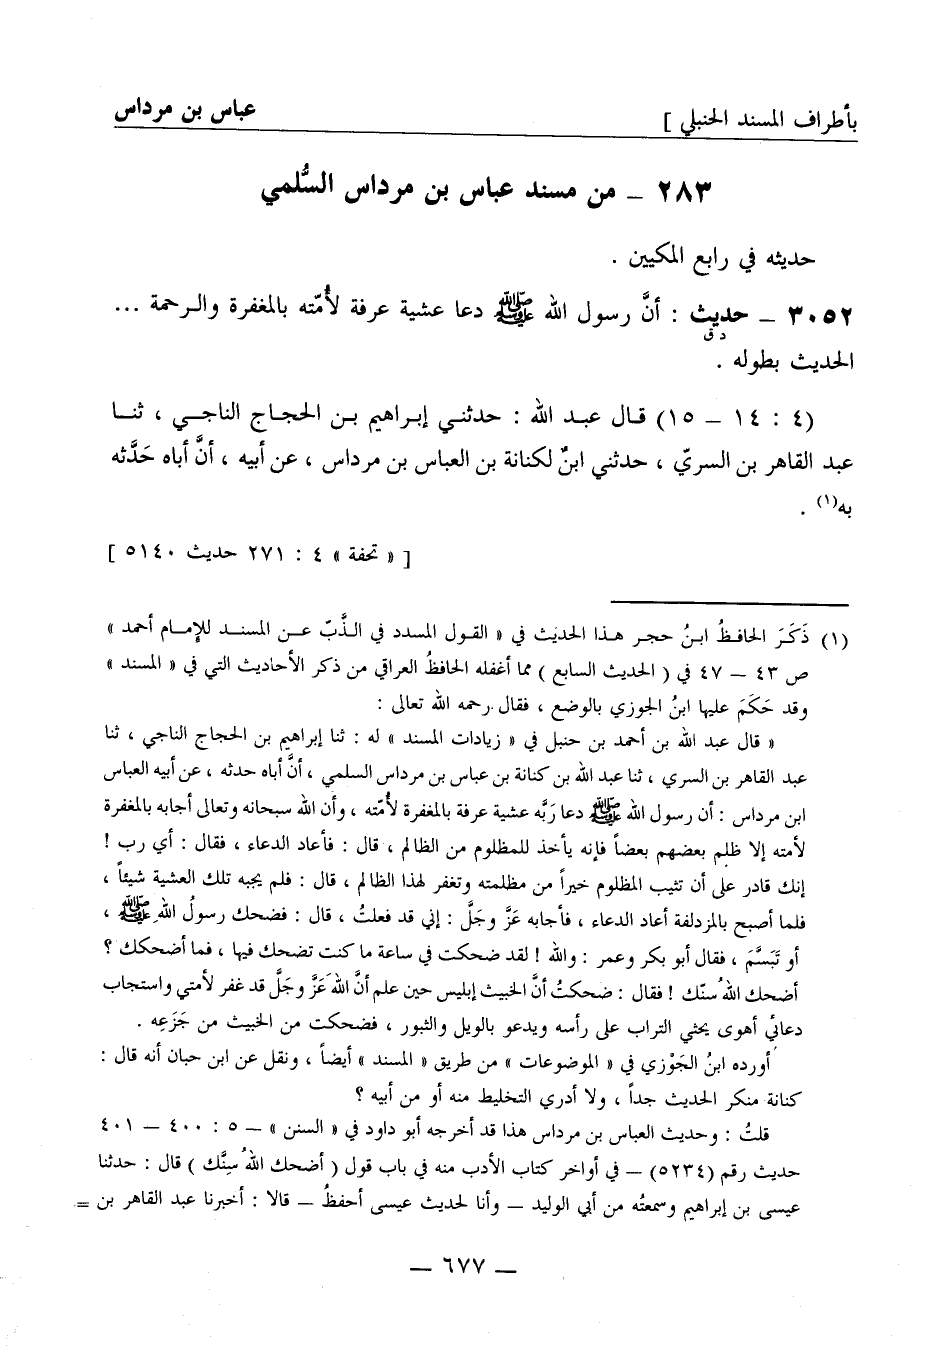 بأطراف المسند الحنبلي ] عباس بن مرداس
٢٨٣ ــ من مسند عباس بن مرداس السُّلمي
حديثه في رابع المكيين .
٣٠٥٢ ــ حديث : أنَّ رسول الله ﷺ دعا عشية عرفة لأُمّته بالمغفرة والرحمة ...
د ق
الحديث بطوله .
(٤ : ١٤ ــ ١٥) قال عبد الله : حدثني إبراهيم بن الحجاج الناجي ، ثنا
عبد القاهر بن السريّ ، حدثني ابنٌ لكنانة بن العباس بن مرداس ، عن أبيه ، أنَّ أباه حَدَّثه
به(١) .
[ « تحفة » ٤ : ٢٧١ حديث ٥١٤٠ ]
(١) ذَكَرَ الحافظُ ابنُ حجر هذا الحديث في « القول المسدد في الذَّبّ عن المسند للإمام أحمد »
ص ٤٣ ــ ٤٧ في ( الحديث السابع ) مما أغفله الحافظُ العراقي من ذكر الأحاديث التي في « المسند »
وقد حَكَمَ عليها ابنُ الجوزي بالوضع ، فقال رحمه الله تعالى :
« قال عبد الله بن أحمد بن حنبل في « زيادات المسند » له : ثنا إبراهيم بن الحجاج الناجي ، ثنا
عبد القاهر بن السري ، ثنا عبد الله بن كنانة بن عباس بن مرداس السلمي ، أنَّ أباه حدثه ، عن أبيه العباس
ابن مرداس : أن رسول الله ﷺ دعا رَبَّه عشية عرفة بالمغفرة لأُمّته ، وأن الله سبحانه وتعالى أجابه بالمغفرة
لأمته إلا ظلم بعضهم بعضاً فإنه يأخذ للمظلوم من الظالم ، قال : فأعاد الدعاء ، فقال : أي رب !
إنك قادر على أن تثيب المظلوم خيراً من مظلمته وتغفر لهذا الظالم ، قال : فلم يجبه تلك العشية شيئاً ،
فلما أصبح بالمزدلفة أعاد الدعاء ، فأجابه عَزَّ وجَلَّ : إني قد فعلتُ ، قال : فضحك رسولُ اللهِ ﷺ ،
أو تَبَسَّمَ ، فقال أبو بكر وعمر : والله ! لقد ضحكت في ساعة ما كنت تضحك فيها ، فما أضحكك ؟
أضحك اللهُ سنّك ! فقال : ضحكتُ أنَّ الخبيث إبليس حين علم أنَّ اللهَ عَزَّ وجَلَّ قد غفر لأمتي واستجاب
دعائي أهوى يحثي التراب على رأسه ويدعو بالويل والثبور ، فضحكت من الخبيث من جَزَعِه .
أورده ابنُ الجَوْزي في « الموضوعات » من طريق « المسند » أيضاً ، ونقل عن ابن حبان أنه قال :
كنانة منكر الحديث جداً ، ولا أدري التخليط منه أو من أبيه ؟
قلتُ : وحديث العباس بن مرداس هذا قد أخرجه أبو داود في « السنن » ــ ٥ : ٤٠٠ ــ ٤٠١
حديث رقم (٥٢٣٤) ــ في أواخر كتاب الأدب منه في باب قول ( أضحك اللهُ سِنَّك ) قال : حدثنا
عيسى بن إبراهيم وسمعتُه من أبي الوليد ــ وأنا لحديث عيسى أحفظُ ــ قالا : أخبرنا عبد القاهر بن =
ــ ٦٧٧ ــ